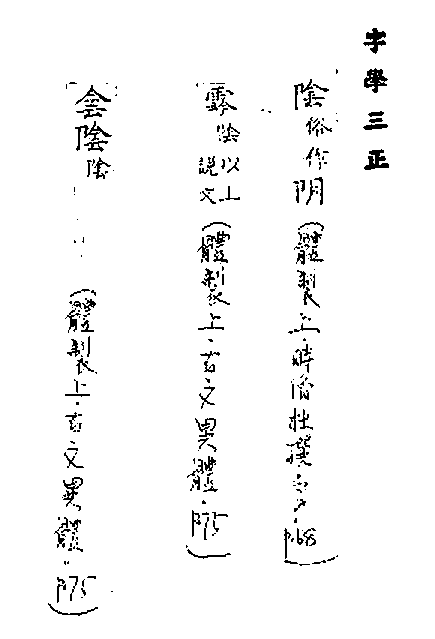 字學三正
陰俗作阴(體製上·時俗杜撰字·p.68)
霒陰以上說文(體製上·古文異體·p75)
侌陰陰(體製上·古文異體·p75)